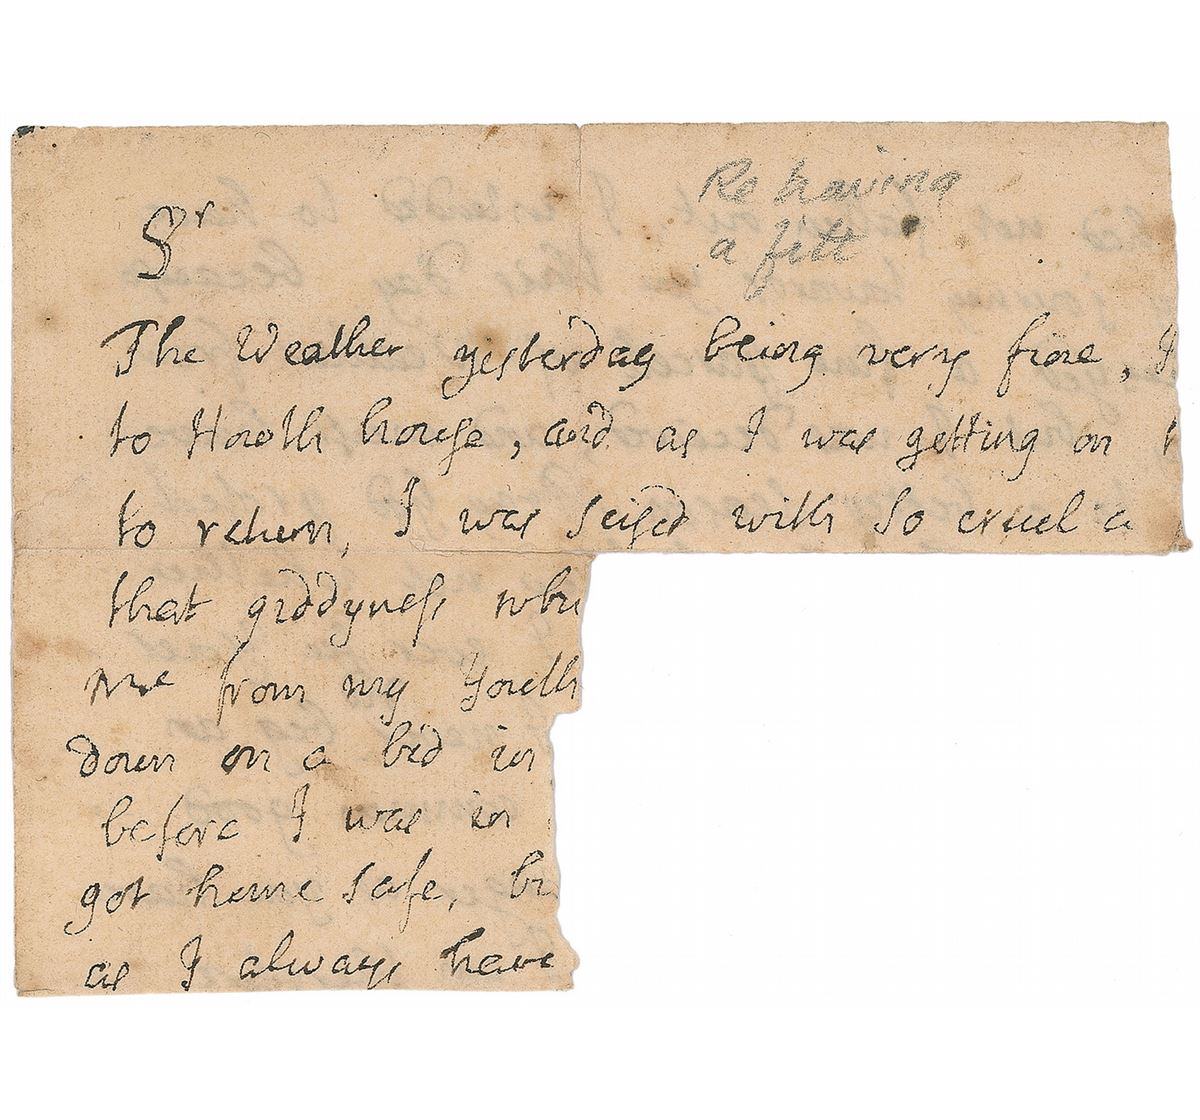 Re having
a fitt
Sr
The Weather yesterday being very fine, I
to Howth house, and as I was getting on
to return, I was seised with so cruel a
that giddyness
me from my Youth
down on a bed in
before I was in
got home safe,
as I always have